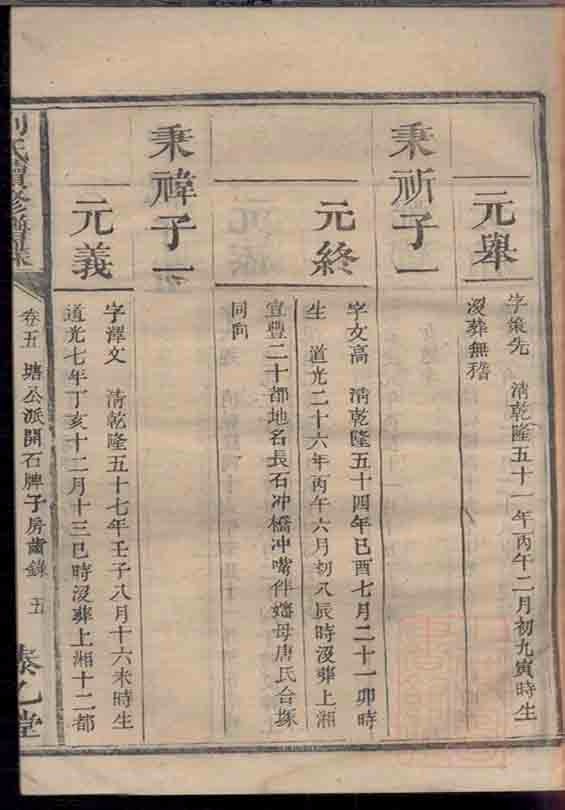 元舉
字策先　清乾隆五十一年丙午二月初九寅時生
沒葬無稽
秉祈子一
元終
字文高　清乾隆五十四年己酉七月二十一卯時
生　道光二十六年丙午六月初八辰時沒葬上湘
宣豐二十都地名長石冲橋冲嘴伴嬸母唐氏合塚
同向
秉禕子一
元義
字澤文　清乾隆五十七年壬子八月十六未時生
道光七年丁亥十二月十三巳時沒葬上湘十二都
劉氏續修譜
卷五　塘公派開石牌子房齒錄　五
泰乙堂